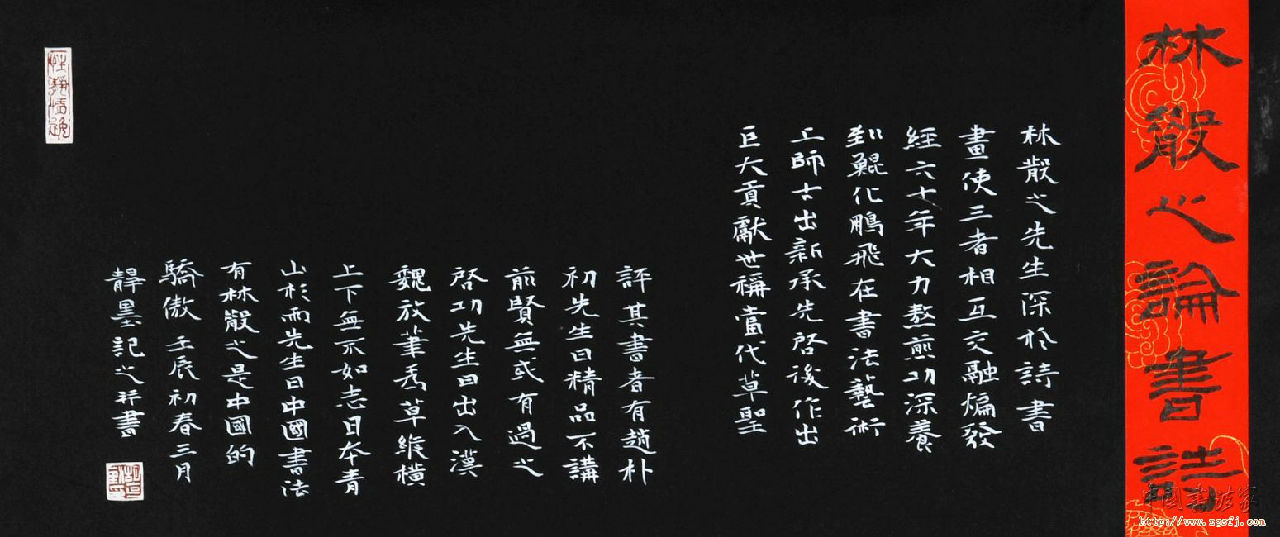 林散之論書詩
林散之先生深於詩書
畫使三者相互交融煸發
經六十年大力熬煎功深養
到鯤化鵬飛在書法藝術
上師古出新承先啓後作出
巨大貢獻世稱當代草聖
評其書者有趙朴
初先生曰精品不講
前賢無或有過之
啓功先生曰出入漢
魏放筆爲草縱橫
上下無不如志日本青
山杉雨先生曰中國書法
有林散之是中國的
驕傲壬辰初春三月
靜墨記之并書
中国书法家
http://www.zgsfj.com